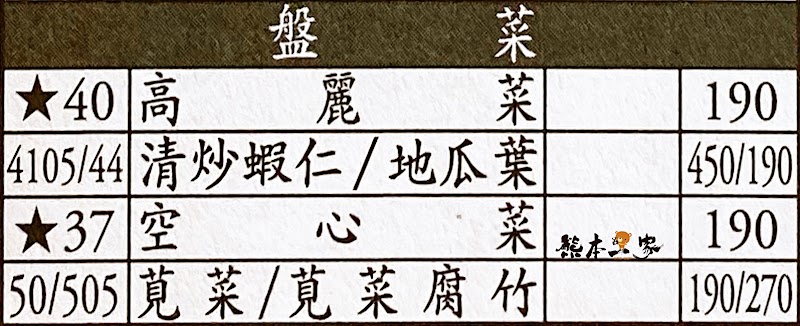 盤菜
★40 高麗菜 190
4105/44 清炒蝦仁/地瓜葉 450/190
★37 空心菜 190
熊本一家
50/505 莧菜/莧菜腐竹 190/270